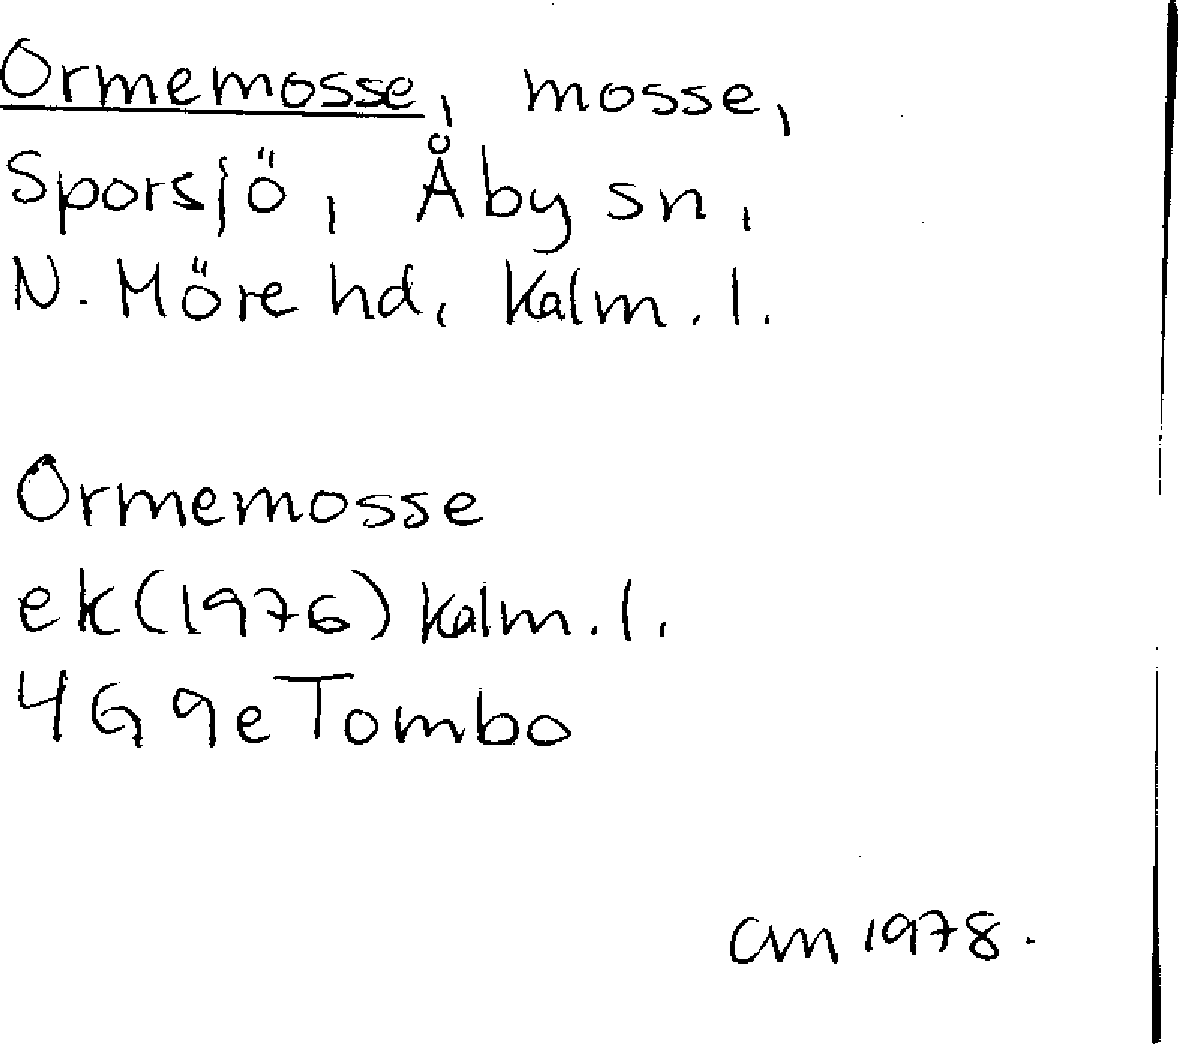 Ormemosse, mosse,
Sporsjö, Åby sn,
N. Möre hd, Kalm. l.
Ormemosse
ek (1976) Kalm. l.
4G 9e Tombo
CM 1978.